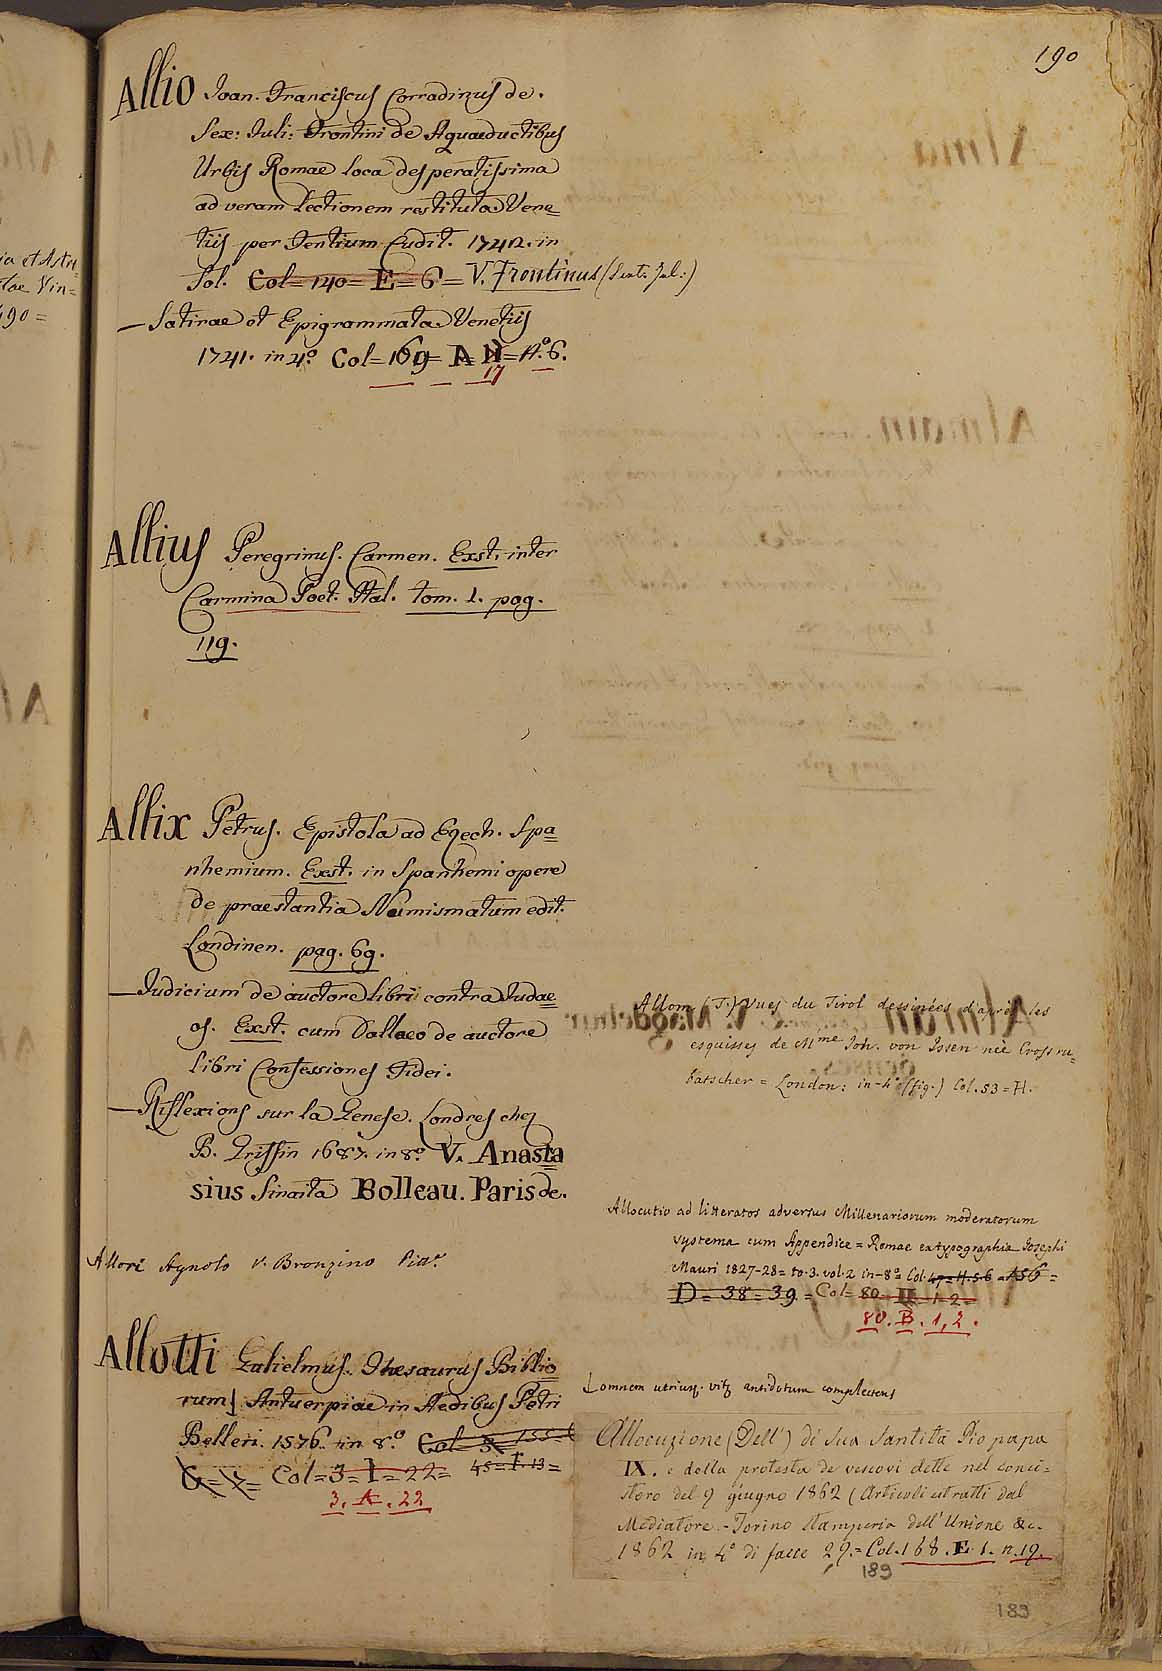 190
Allio Ioan. Franciscus Corradinus de.
Sex: Iuli: Frontini de Aquaeductibus
Urbis Romae loca desperatissima
ad veram lectionem restituta Vene=
tiis per Tentium Cudit. 1742. in
Fol. Col= 140= E= 6= V. Frontinus (Sext. Jul:)
— Satirae et Epigrammata Venetiis
1741. in 4.º Col= 169= A N= N.º 6.
17
Allius Peregrinus. Carmen. Exst. inter
Carmina Poet. Ital. tom. 1. pag.
119.
Allix Petrus. Epistola ad Ezech. Spa=
nhemium. Exst. in Spanhemi opere
de praestantia Numismatum edit.
Londinen. pag. 69.
— Iudicium de auctore libri contra Iudae=
os. Exst. cum Dallaeo de auctore
libri Confessiones Fidei.
— Riflexions sur la Genese. Londres chez
B. Griffin 1687. in 8.º V. Anasta=
sius Sinaita Bolleau. Paris de.
Allori Agnolo v. Bronzino
Allotti Gulielmus. Thesaurus Biblio=
rum Antuerpiae in Aedibus Petri
Belleri. 1576. in 8.º Col
G= Col= 3= I= 22= 45= F. 13=
3. A. 22
Allom (T.) Vues du Tirol dessinées d'après les
esquisses de Mme Joh. von Issen née Grossru=
batscher = London: in-4º (fig.) Col. 53= H.
Allocutio ad litteratos adversus Millenariorum moderatorum
systema cum Appendice = Romae ex typographia Josephi
Mauri 1827-28= to. 3. vol. 2 in-8º= Col. 47= H. 5. 6
D= 38= 39= Col= 80 1= 2=
80. B. 1, 2.
omnem utriusq. vitę antidotum complectens
Allocuzione (Dell') di Sua Santità Pio papa
IX. e della protesta de vescovi dette nel conci=
storo del 9 giugno 1862 (Articoli estratti dal
Mediatore. - Torino Stamperia dell'Unione &c.
1862 in 4º di facce 29.= Col. 168. E. 1. n. 19.
189
189